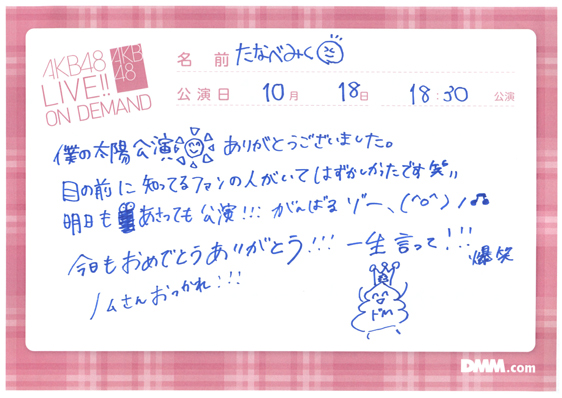 AKB48
LIVE!!
ON DEMAND
AKB
48
名 前 たなべみく
公演日 10月 18日 18:30 公演
僕の太陽公演 ありがとうございました。
目の前に知ってるファンの人がいてはずかしかったです笑"
明日も あさっても公演!!! がんばるゾー、(^o^)ノ♫
今日もおめでとうありがとう!!! 一生言って!!! 爆笑
ノムさんおつかれ!!!
ドM
DMM.com